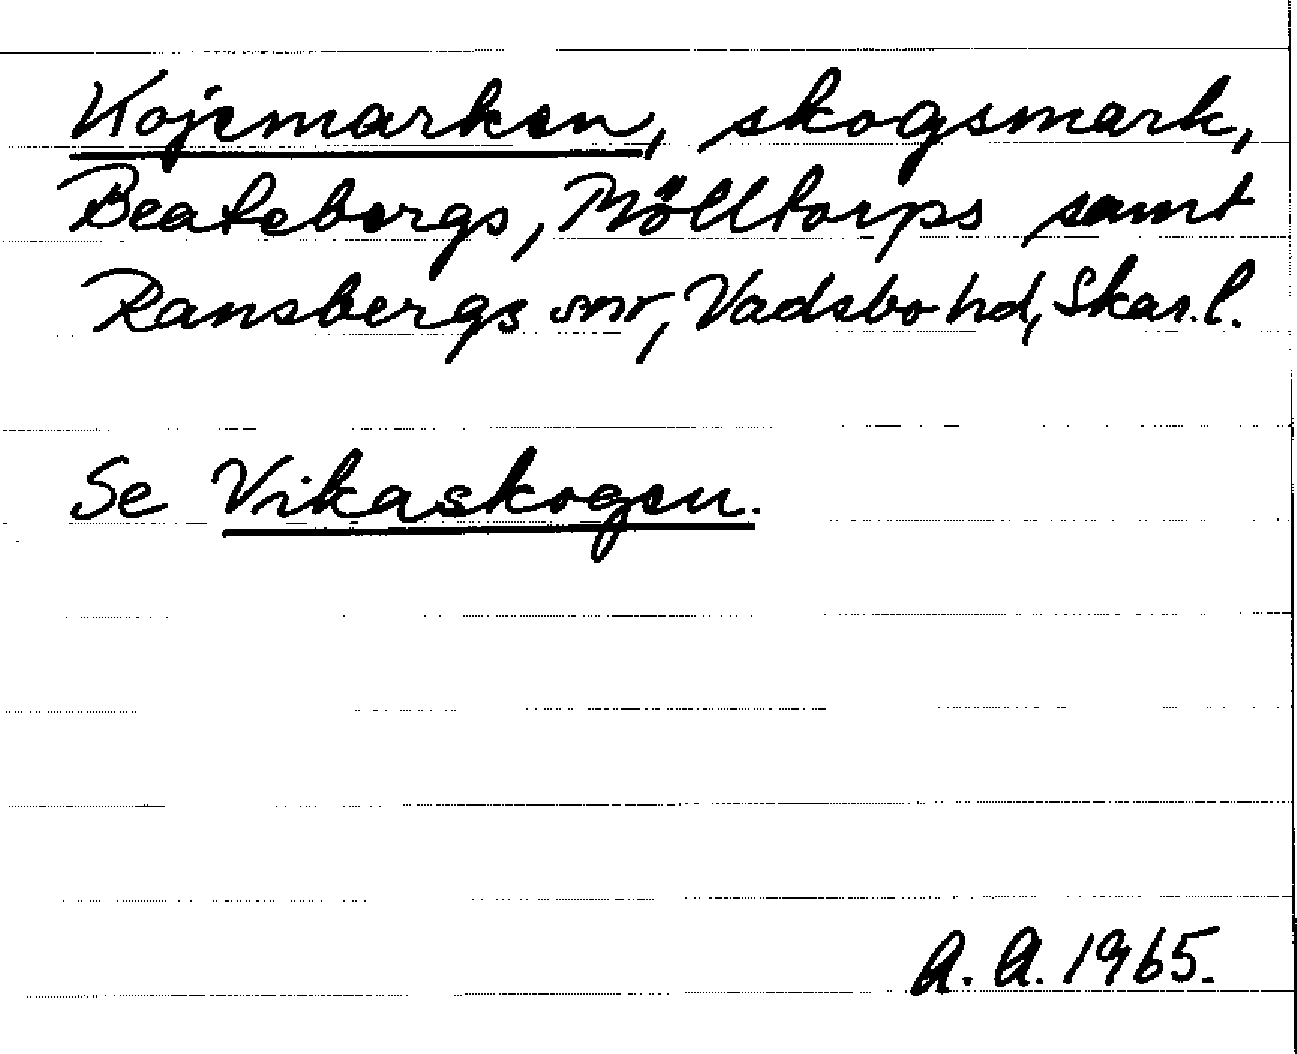 Kojemarken, skogsmark,
Beatebergs, Mölltorps samt
Ransbergs snr, Vadsbo hd, Skar.l.
Se Vikaskogen.
A. A. 1965.